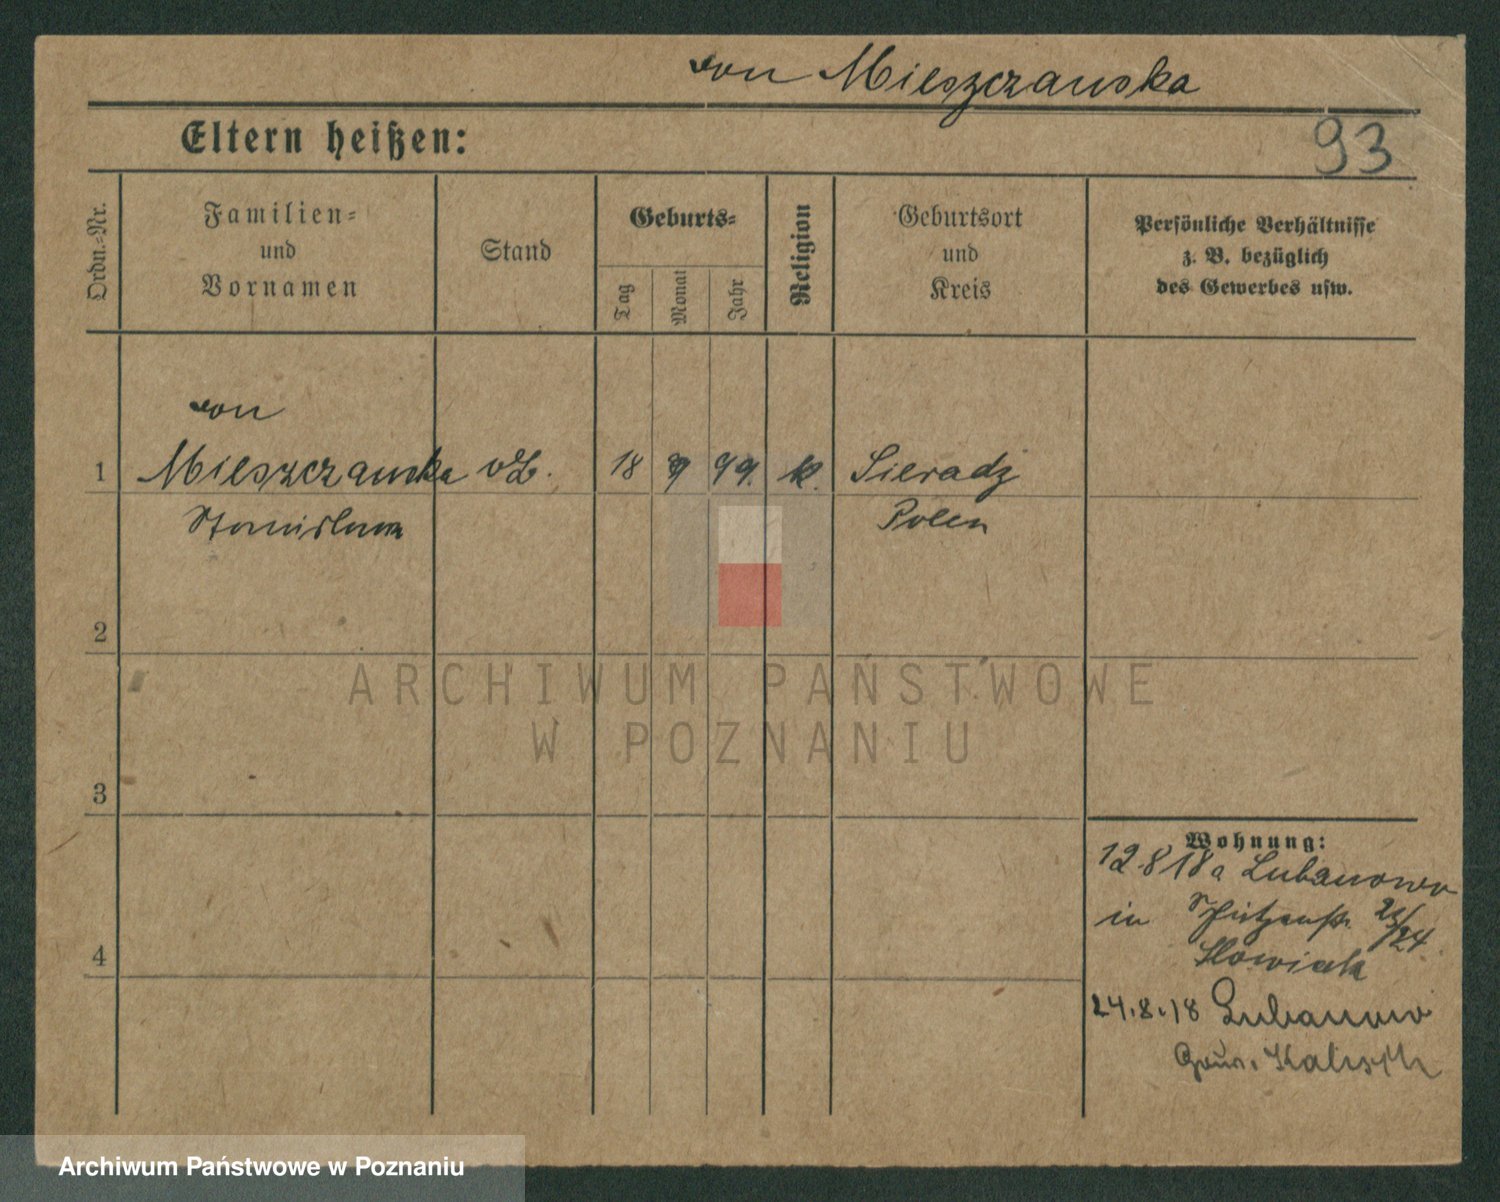 von Mieszczanska
Eltern heißen:
93
Ordn.-Nr.
Familien-
und
Vornamen
Stand
Geburts-
Tag
Monat
Jahr
Religion
Geburtsort
und
Kreis
Persönliche Verhältnisse
z. B. bezüglich
des Gewerbes usw.
von
1 Mieszczanska 18 9 99. k. Sieradz
Stanislawa Polen
2
3
4
ARCHIWUM PAŃSTWOWE
W POZNANIU
Wohnung:
12 8 18 a Lubanowo
in Schützenstr. 23/24
Slowiak
24.8.18 Lubanowo
Gouv. Kalisch
Archiwum Państwowe w Poznaniu